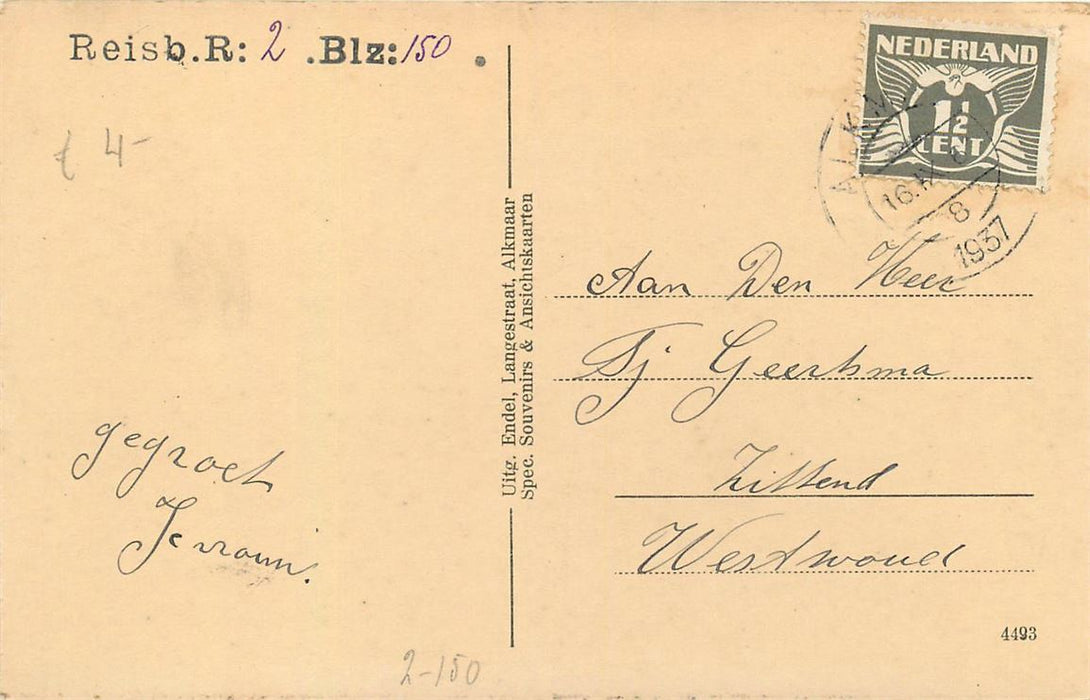 Reisb.R: 2 .Blz: 150 .
£ 4-
gegroet
Je vrouw.
2-150
Uitg. Endel, Langestraat, Alkmaar
Spec. Souvenirs & Ansichtskaarten
NEDERLAND
1½
CENT
ALKM
16.IX
8
1937
Aan Den Heer
Tj Geertsma
Zittend
Westwoud
4493